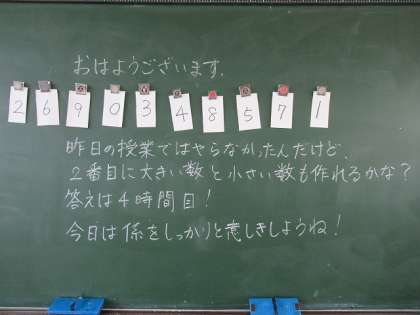 おはようございます.
2 6 9 0 3 4 8 5 7 1
昨日の授業ではやらなかったんだけど、
2番目に大きい数と小さい数も作れるかな？
答えは4時間目！
今日は係をしっかりと意しきしようね！